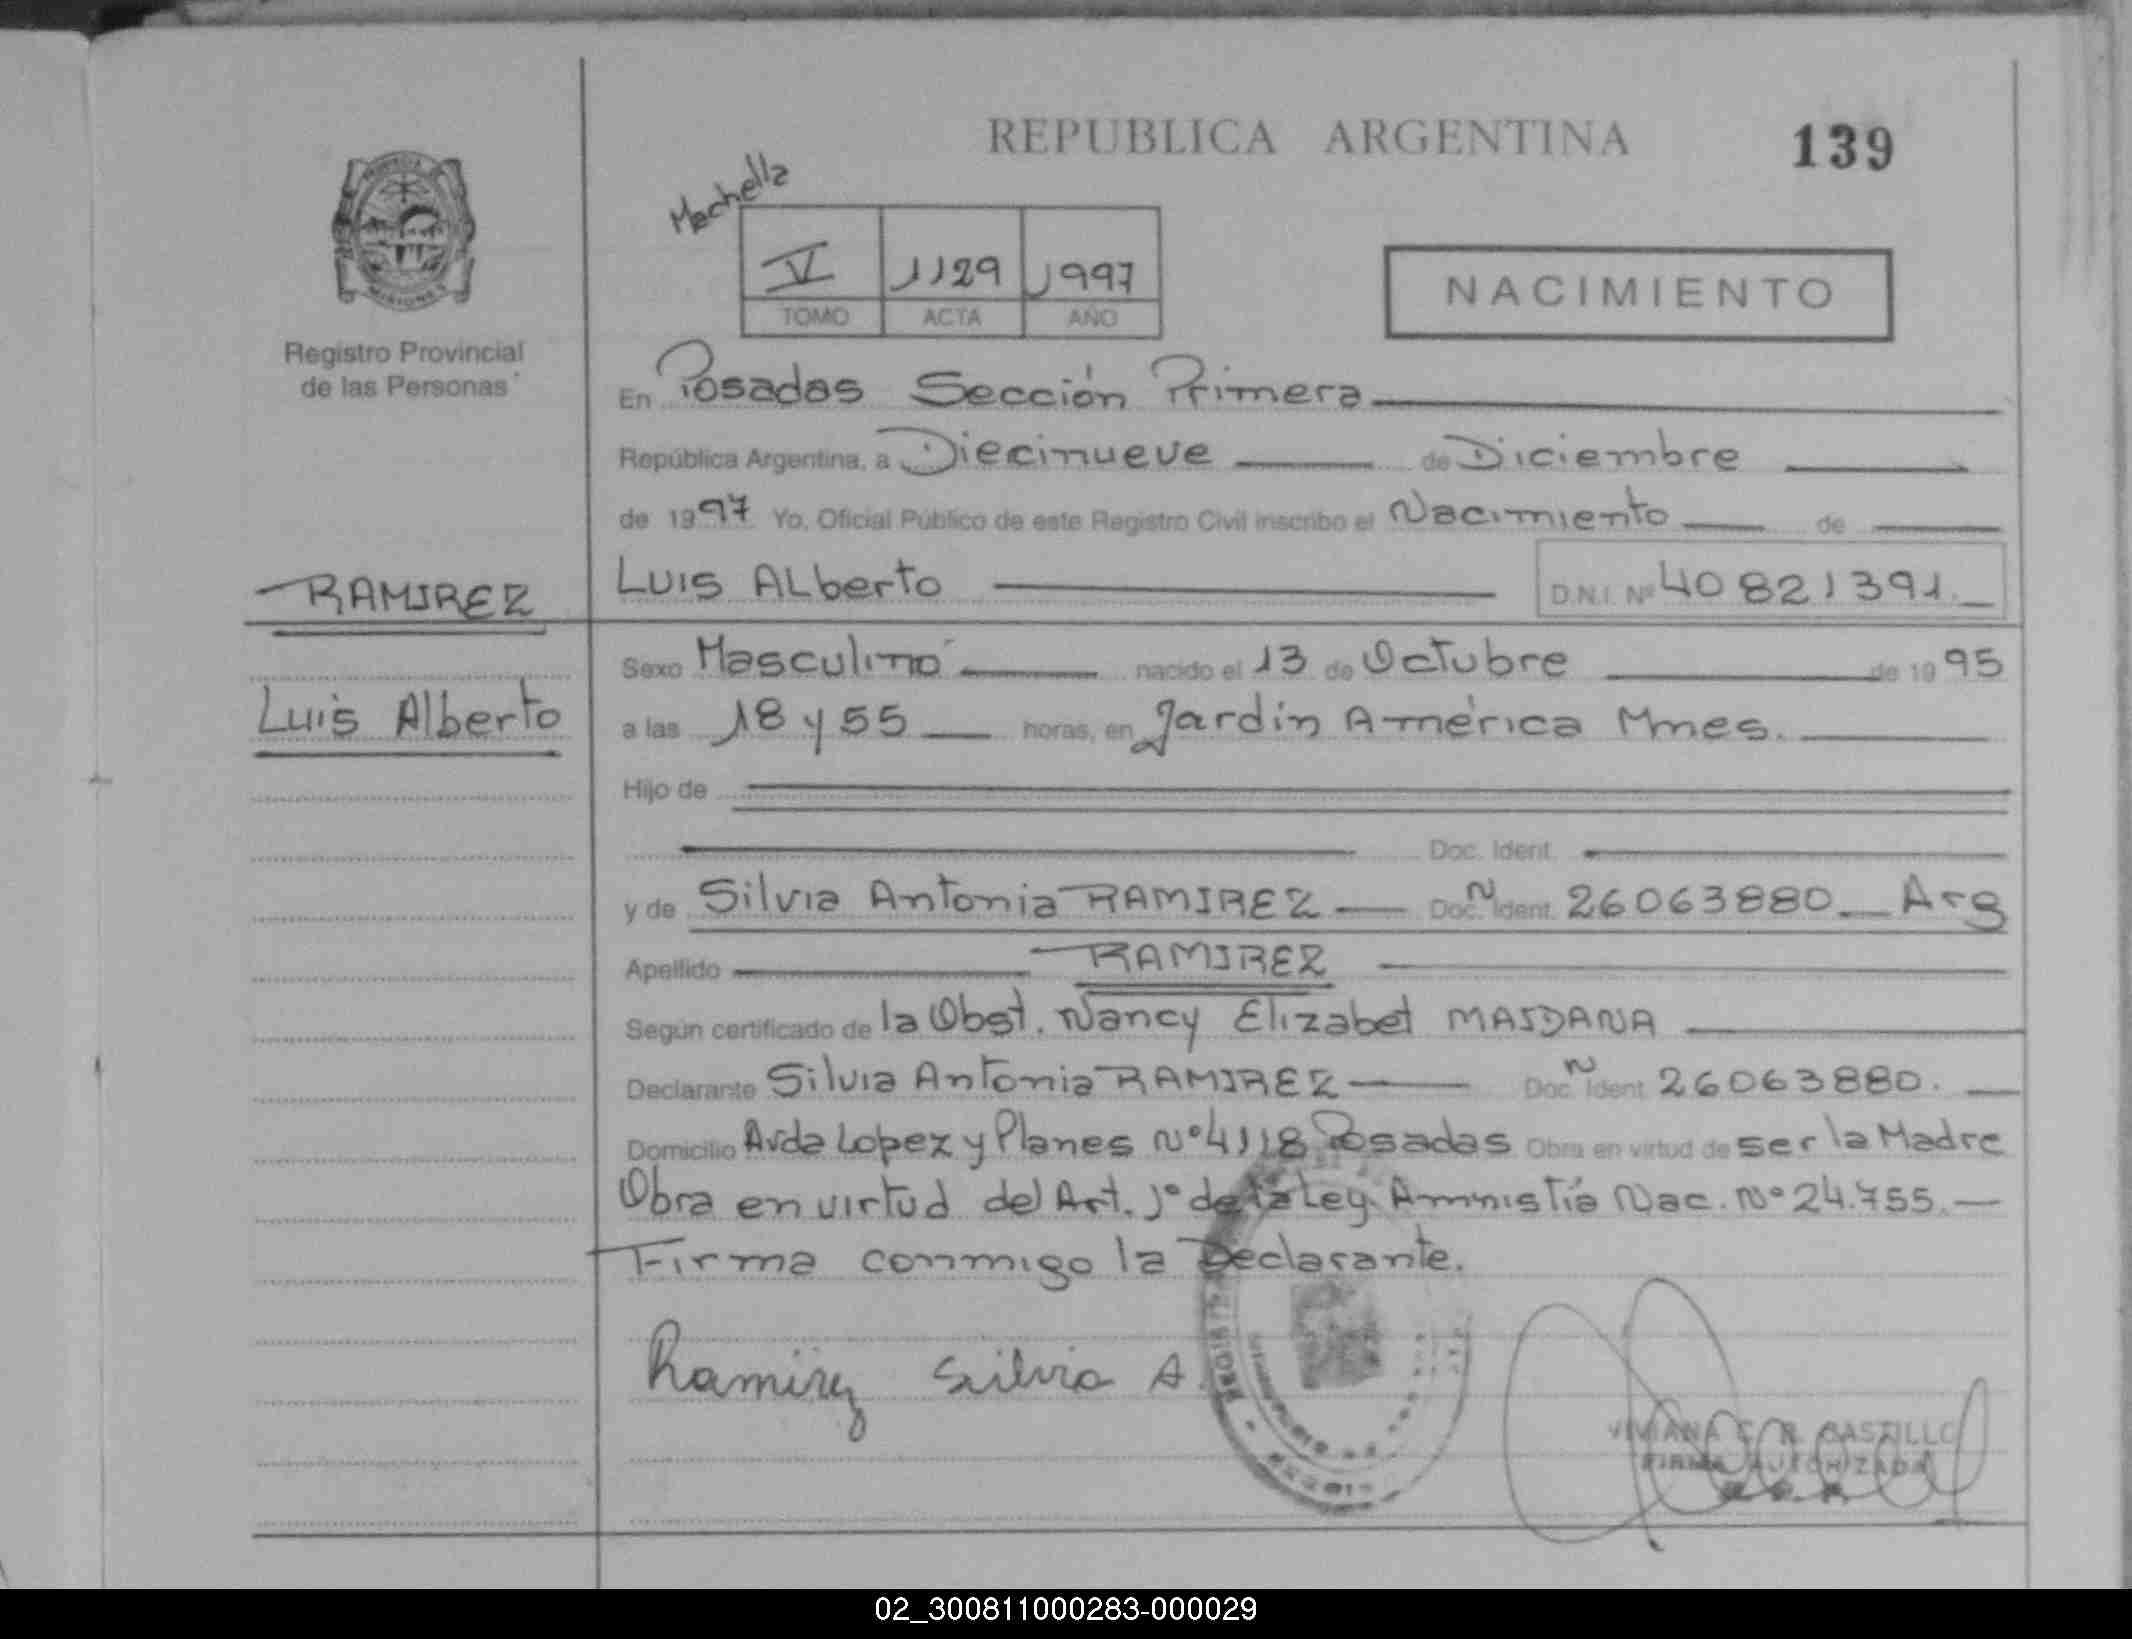 REPUBLICA ARGENTINA
139
Machella
V 1129 1997
TOMO ACTA AÑO
NACIMIENTO
PROVINCIA
MISIONES
Registro Provincial
de las Personas
En Posadas Sección Primera
República Argentina, a Diecinueve de Diciembre
de 1997 Yo, Oficial Público de este Registro Civil inscribo el Nacimiento de
RAMIREZ
Luis Alberto
Luis Alberto D.N.I. Nº 40821391.
Sexo Masculino nacido el 13 de Octubre de 1995
a las 18 y 55 horas, en Jardín América Mnes.
Hijo de
Doc. Ident.
y de Silvia Antonia RAMIREZ Doc. Ident. N 26063880 Arg
Apellido RAMIREZ
Según certificado de la Obst. Nancy Elizabet MAIDANA
Declarante Silvia Antonia RAMIREZ Doc. Ident N 26063880.
Domicilio Avda Lopez y Planes Nº 4118 Posadas Obra en virtud de ser la Madre
Obra en virtud del Art. 1º de la Ley Amnistía Nac. Nº 24.755.
Firma conmigo la Declarante.
Ramirez Silvia A
VIVIANA C. R. CASTILLO
FIRMA AUTORIZADA
02_300811000283-000029